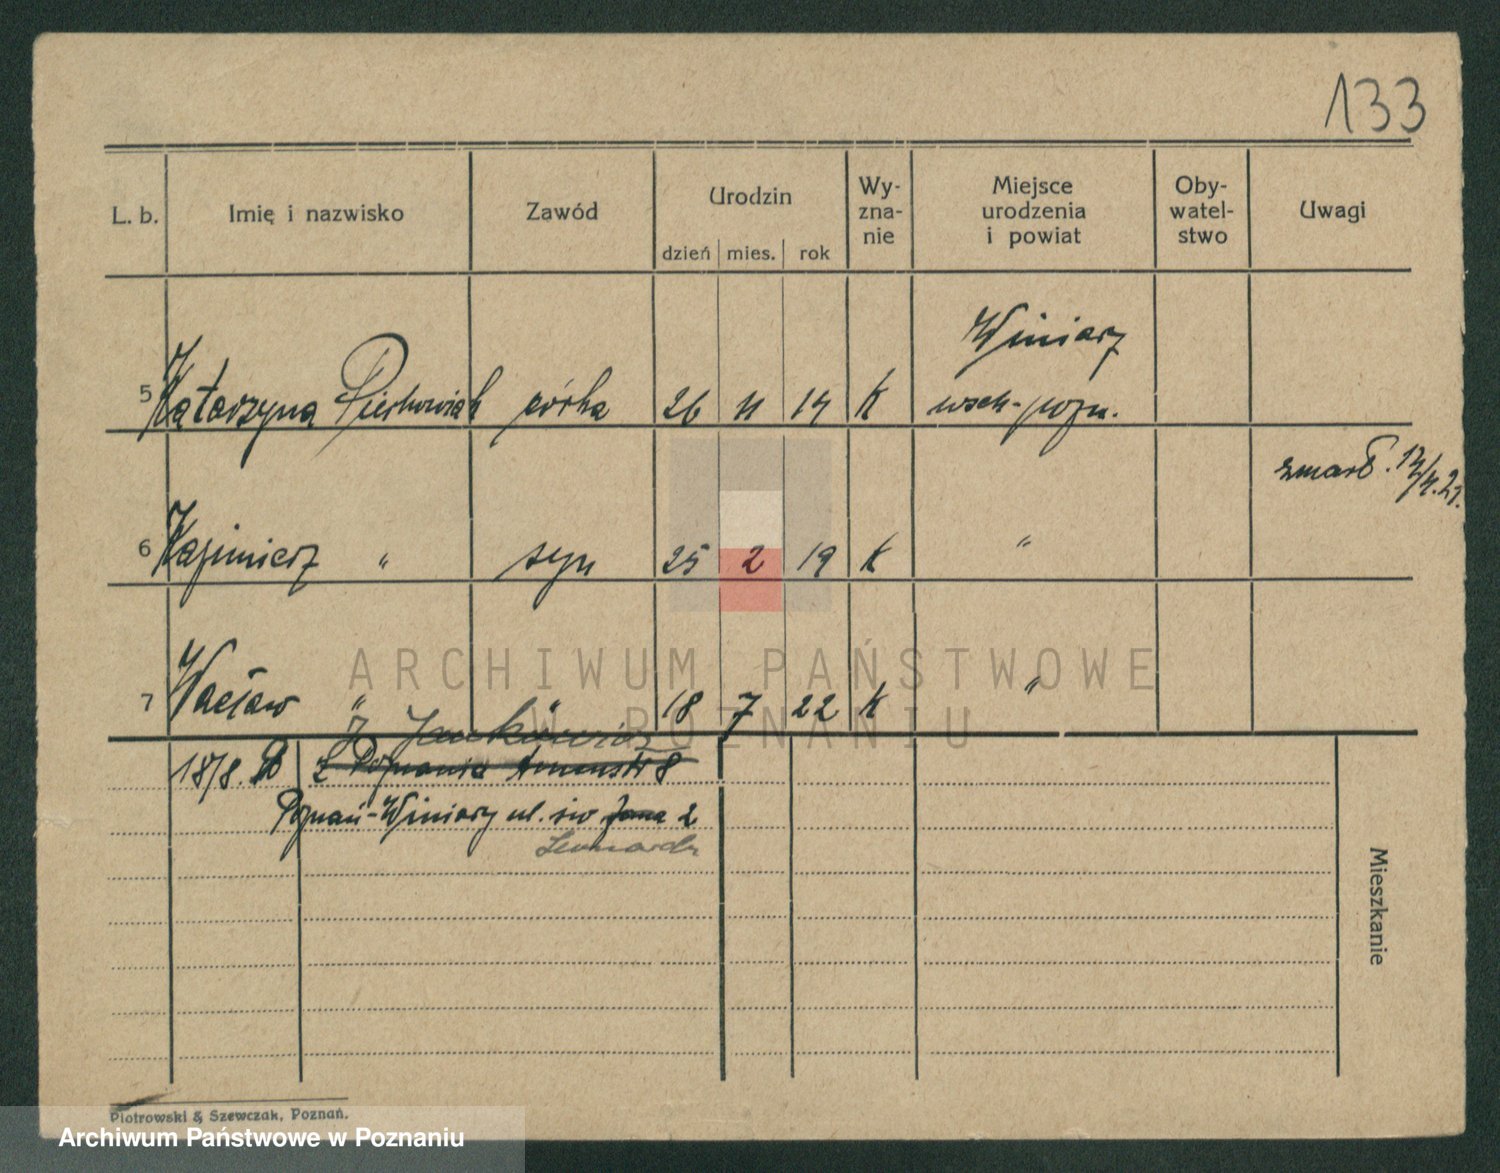 133
L. b. Imię i nazwisko Zawód Urodzin dzień mies. rok Wy-zna-nie Miejsce urodzenia i powiat Oby-watel-stwo Uwagi
Winiary
5 Katarzyna Piechowiak córka 26 11 14 K wsch-pozn.
zmarł. 12/4.21.
6 Kazimierz " syn 25 2 19 K "
7 Wacław " " 18 7 22 K "
Z Jankowic
18/8. Z Poznania 8
Poznań-Winiary ul. św Jana 2
Leonarda
Mieszkanie
Piotrowski & Szewczak, Poznań.
ARCHIWUM PAŃSTWOWE
W POZNANIU
Archiwum Państwowe w Poznaniu